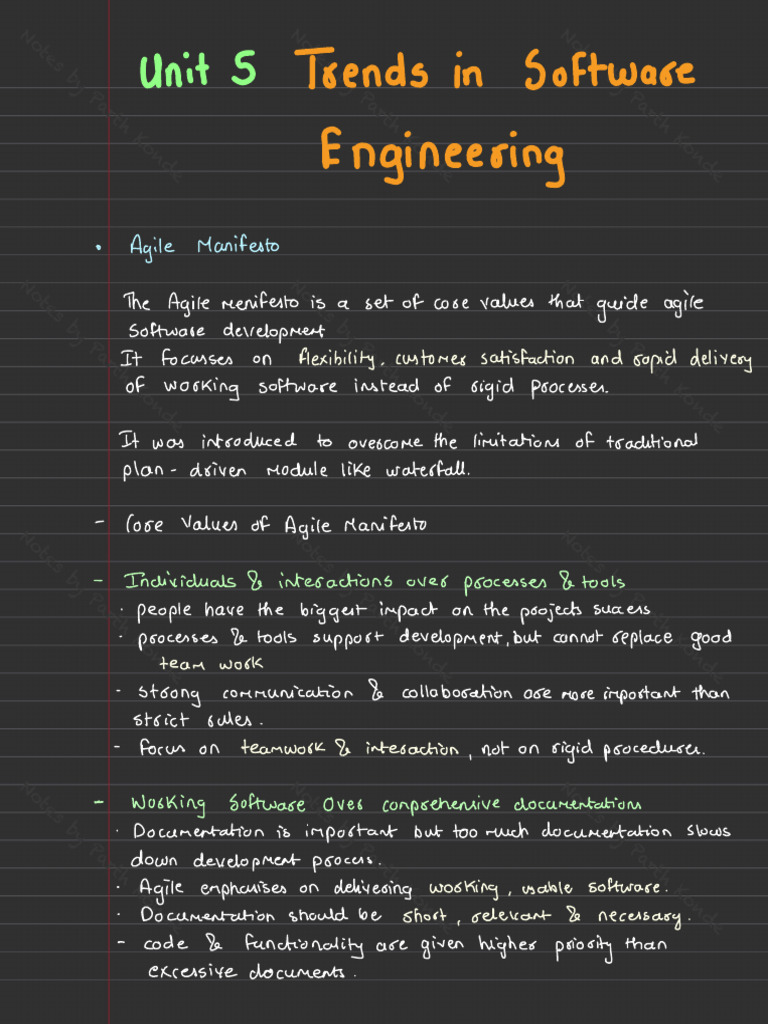 Unit 5 Trends in Software
Engineering
• Agile Manifesto
The Agile menifesto is a set of core values that guide agile
software development
It focusses on flexibility, customer satisfaction and rapid delivery
of working software instead of rigid processes.
It was introduced to overcome the limitations of traditional
plan - driven module like waterfall.
- Core Values of Agile Manifesto
- Individuals & interactions over processes & tools
· people have the biggest impact on the projects success
· processes & tools support development, but cannot replace good
team work
- strong communication & collaboration are more important than
strict rules.
- Focus on teamwork & interaction, not on rigid procedures.
- Working Software Over comprehensive documentations
· Documentation is important but too much documentation slows
down development process.
· Agile emphasises on delivering working, usable software.
· Documentation should be short, relevant & necessary.
- code & functionality are given higher priority than
excessive documents.
Notes by Parth Konde